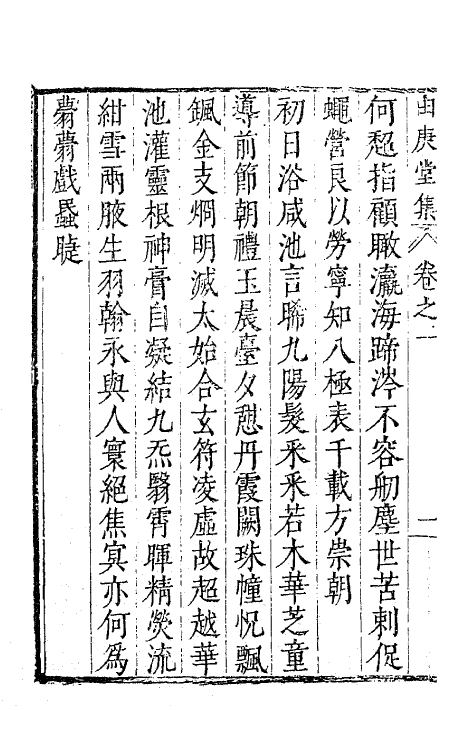 由庚堂集 卷之一 一
何超指顧瞰瀛海蹄涔不容舠塵世苦刺促
蠅營良以勞寧知八極表千載方崇朝
初日浴咸池言晞九陽髮釆釆若木華芝童
導前節朝禮玉晨臺夕憇丹霞闕珠幢怳飄
颻金支烱明滅太始合玄符凌虛故超越華
池灌靈根神膏自凝結九炁翳霄暉精熒流
紺雪兩腋生羽翰永與人寰絕焦冥亦何爲
薨薨戲蟁睫